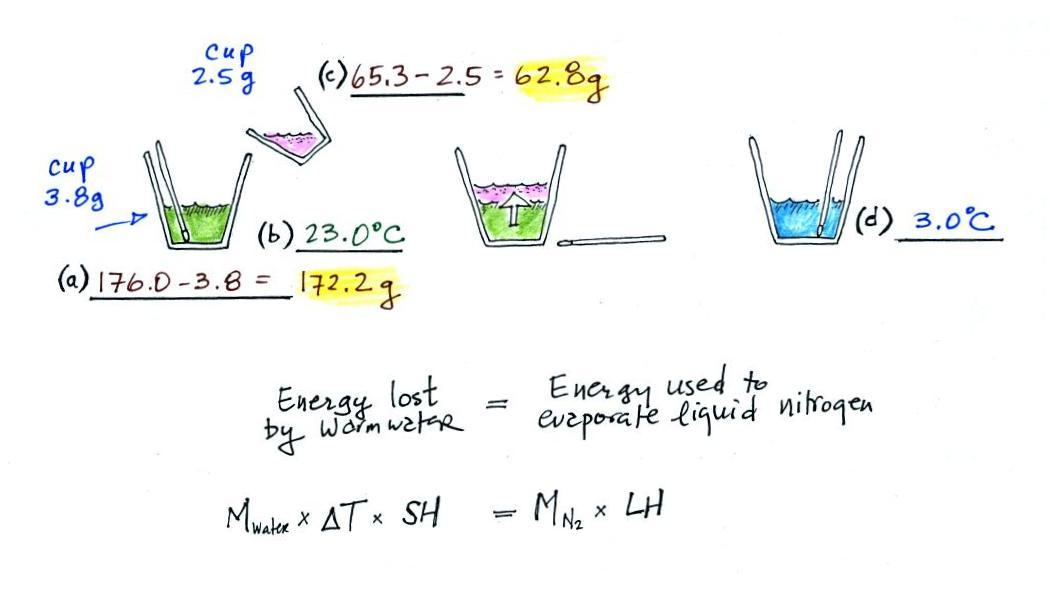 cup
2.5g
(c) 65.3 - 2.5 = 62.8g
cup
3.8g
(b) 23.0°C
(d) 3.0°C
(a) 176.0 - 3.8 = 172.2 g
Energy lost = Energy used to
by warm water evaporate liquid nitrogen
Mwater × ΔT × SH = MN₂ × LH